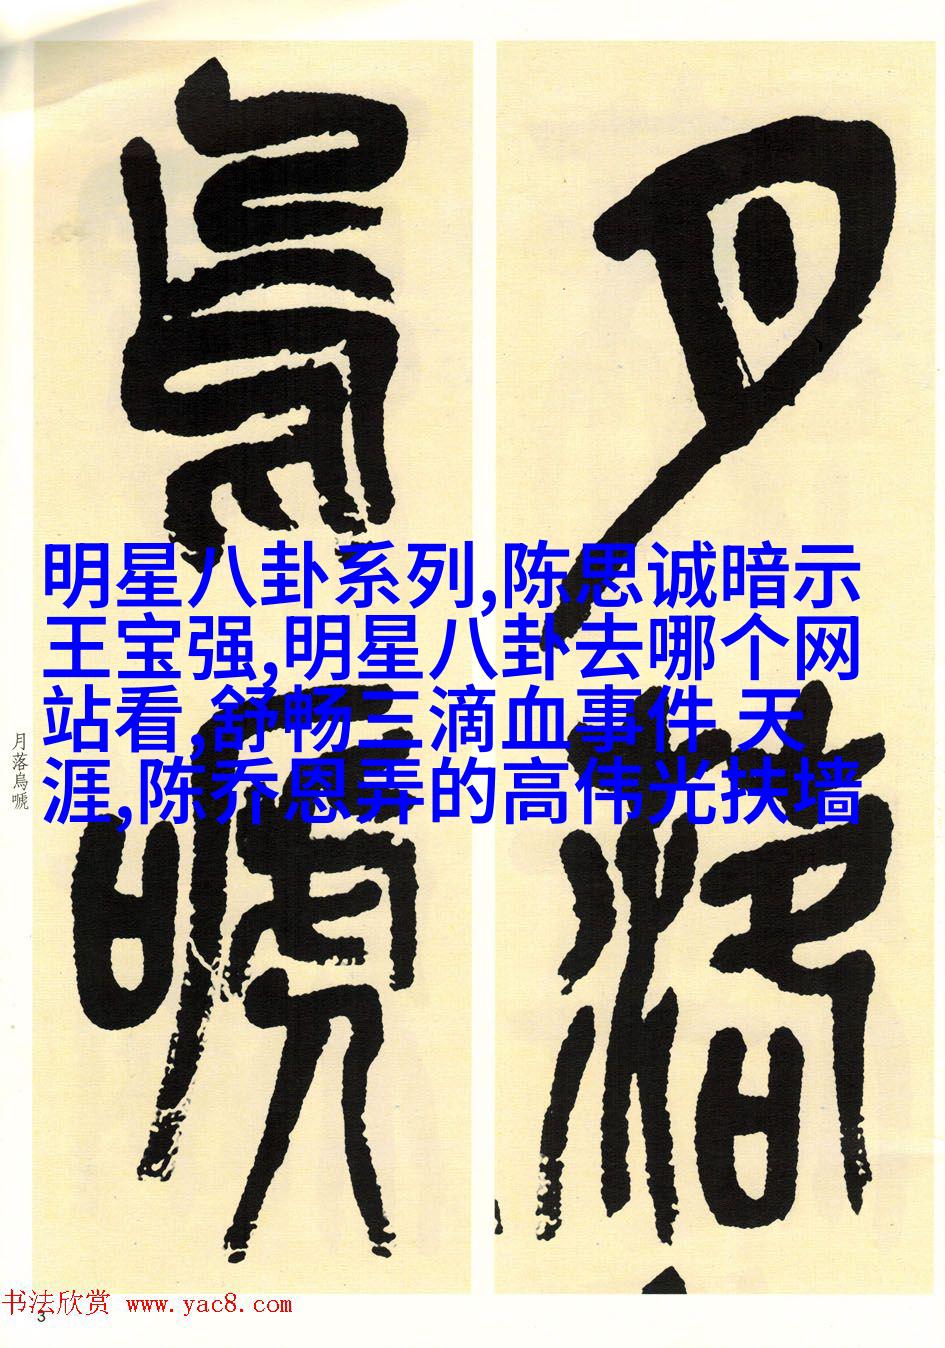 月落
烏嗁
明星八卦系列,陈思诚暗示
王宝强,明星八卦去哪个网
站看,舒畅三滴血事件 天
涯,陈乔恩弄的高伟光扶墙
月落烏嗁
书法欣赏 www.yac8.com
3